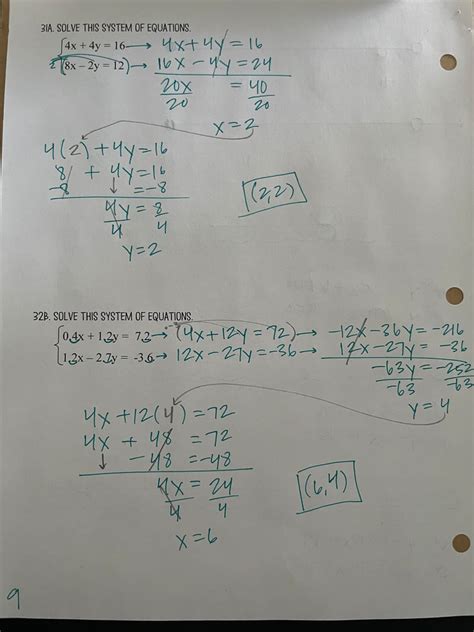 31A. SOLVE THIS SYSTEM OF EQUATIONS.
4x + 4y = 16 → 4x + 4y = 16
2(8x − 2y = 12) → 16x − 4y = 24
20x = 40
20 20
x = 2
4(2) + 4y = 16
8 + 4y = 16
-8 ↓ = -8
4y = 8
4 4
y = 2
(2,2)
32B. SOLVE THIS SYSTEM OF EQUATIONS.
0.4x + 1.2y = 7.2 → (4x + 12y = 72) → -12x - 36y = -216
1.2x − 2.7y = -3.6 → 12x - 27y = -36 → 12x - 27y = -36
-63y = -252
-63 -63
y = 4
4x + 12(4) = 72
4x + 48 = 72
↓ - 48 = -48
4x = 24
4 4
x = 6
(6,4)
9